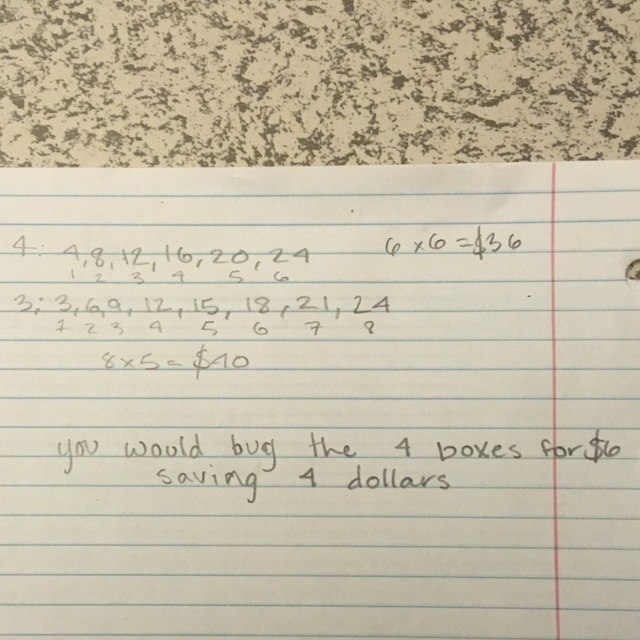 4: 4, 8, 12, 16, 20, 24 6 x 6 = $36
1 2 3 4 5 6
3: 3, 6, 9, 12, 15, 18, 21, 24
1 2 3 4 5 6 7 8
8 x 5 = $40
you would bug the 4 boxes for $6
saving 4 dollars